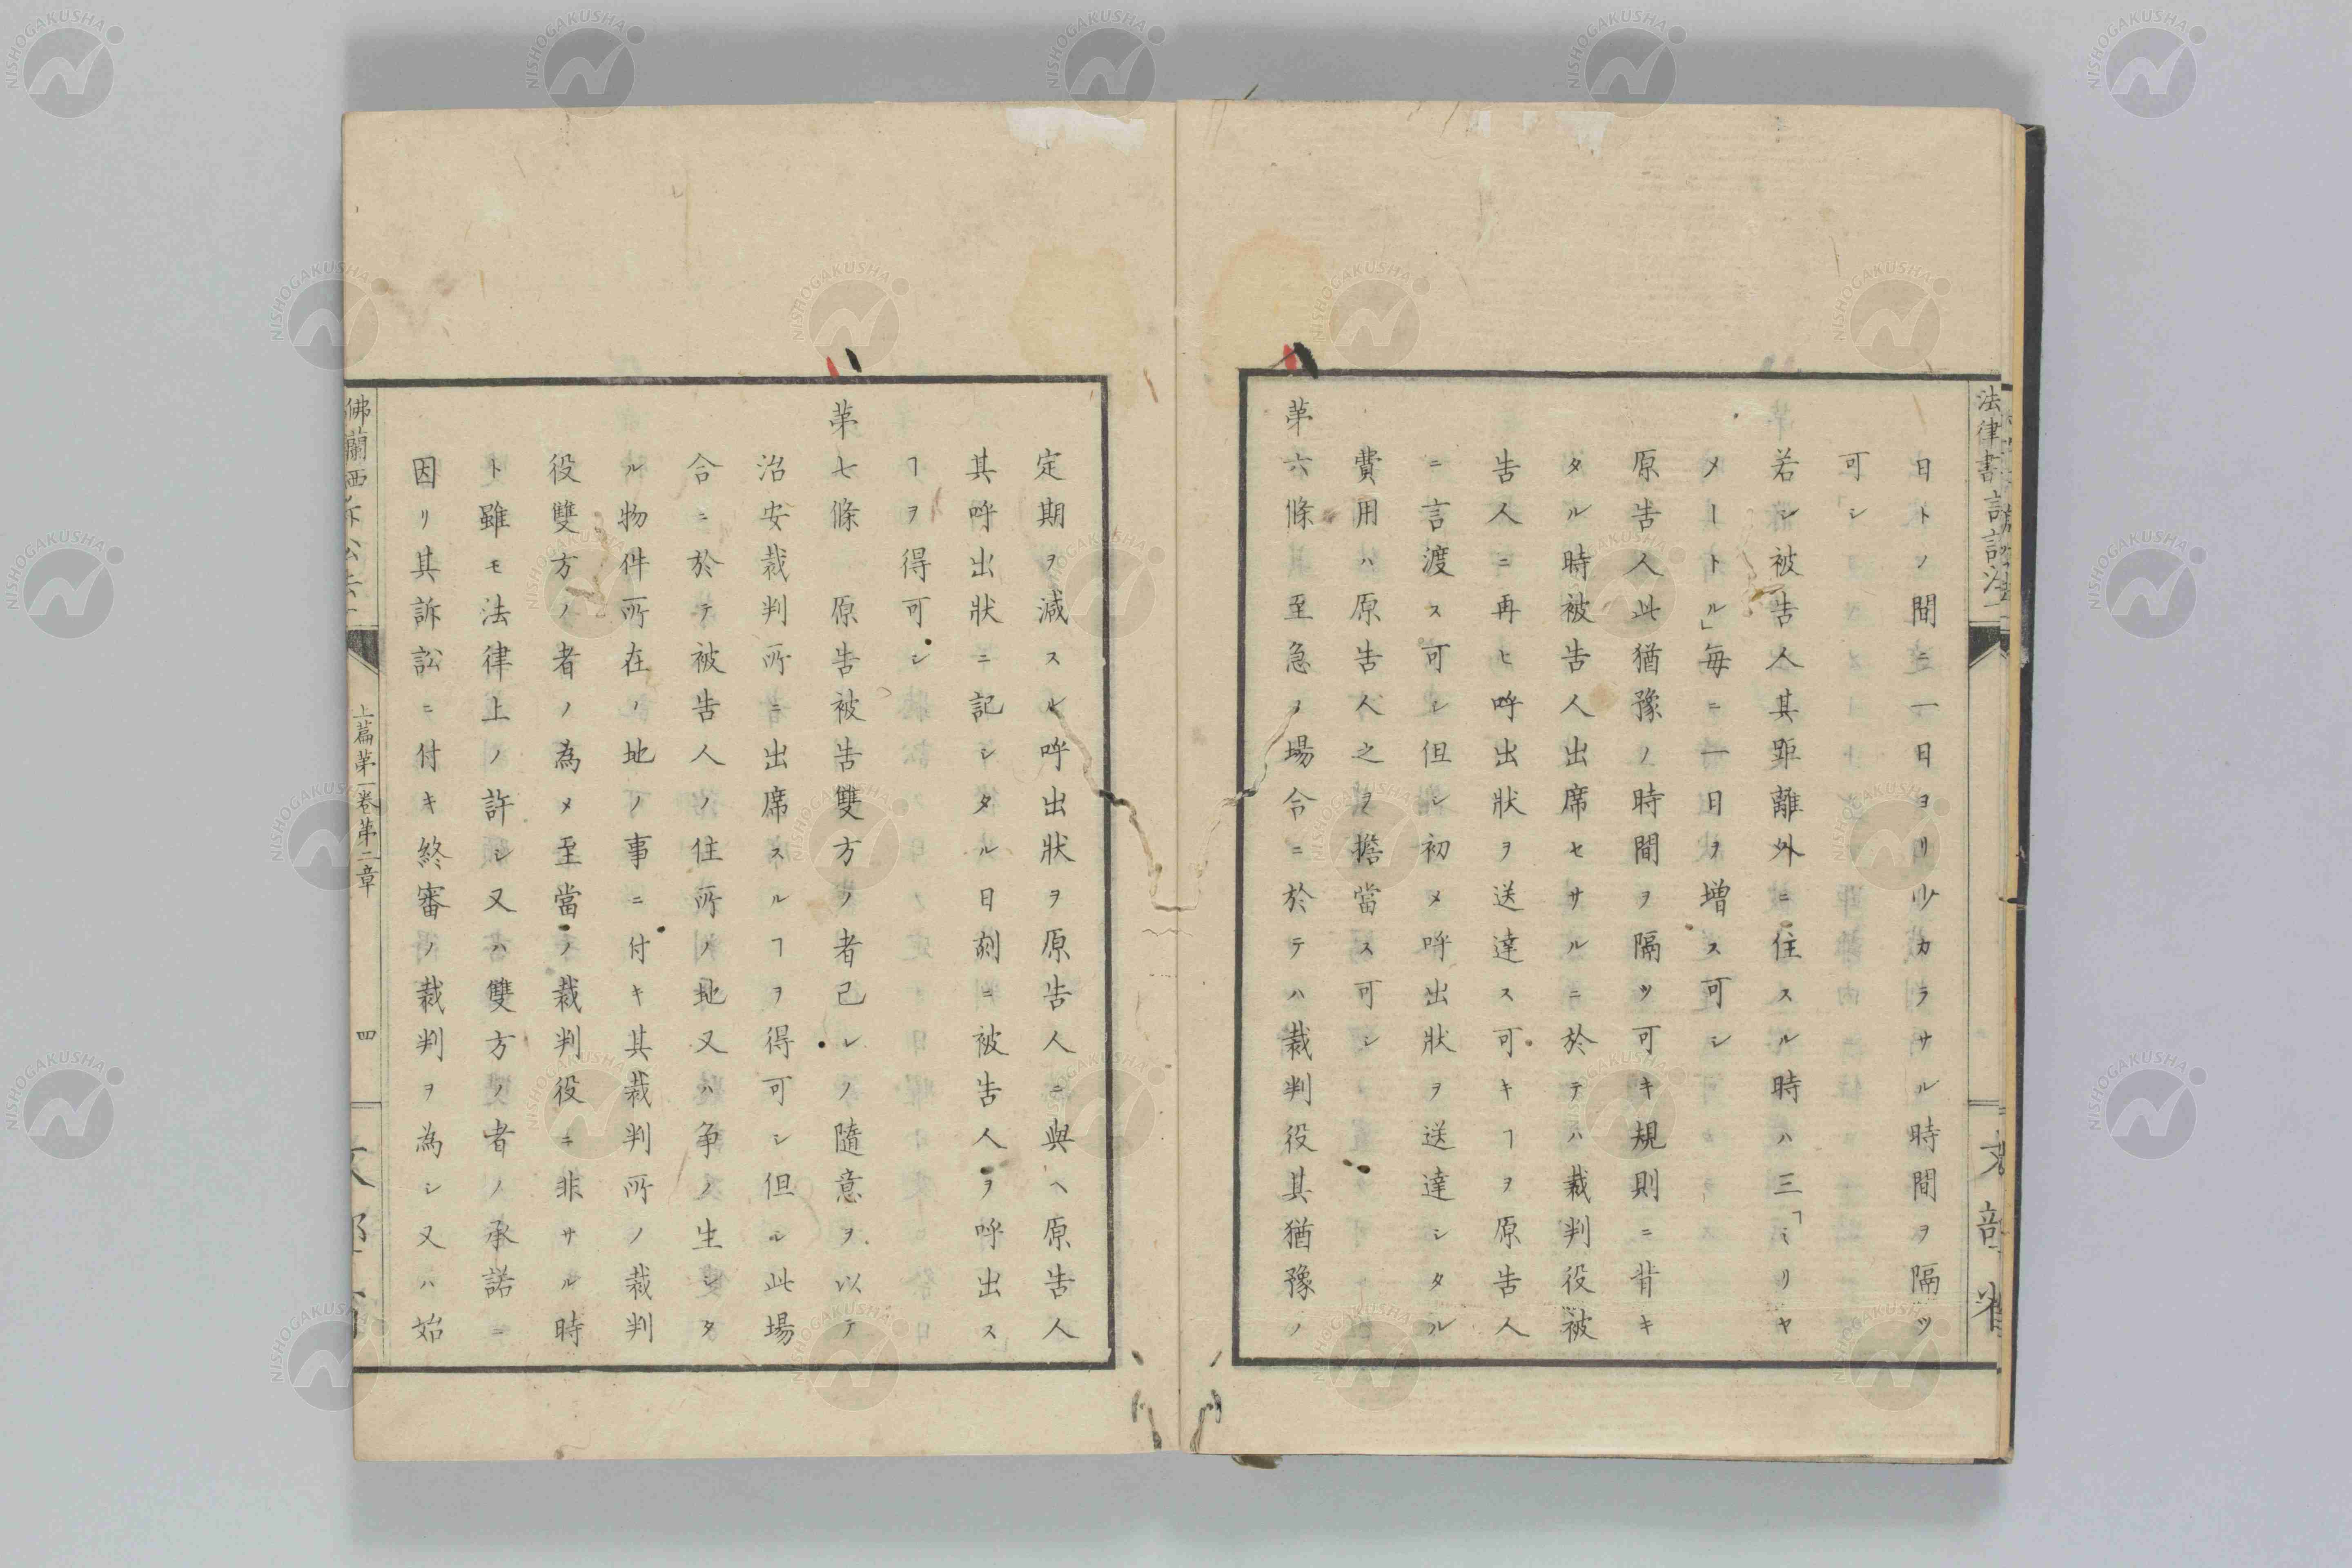 日トノ間ニ一日ヨリ少カラサル時間ヲ隔ツ
可シ
若シ被告人其距離外ニ住スル時ハ三「ミリヤ
メートル」毎ニ一日ヲ増ス可シ
原告人此猶豫ノ時間ヲ隔ツ可キ規則ニ背キ
タル時被告人出席セサルニ於テハ裁判役被
告人ニ再ヒ呼出狀ヲ送達ス可キヿヲ原告人
ニ言渡ス可シ但シ初メ呼出狀ヲ送達シタル
費用ハ原告人之ヲ擔當ス可シ
第六條至急ヲ場合ニ於テハ裁判役其猶豫ノ
定期ヲ減スル呼出狀ヲ原告人ニ與ヘ原告人
其呼出狀ニ記シタル日刻ニ被告人ヲ呼出ス
ヿヲ得可シ
第七條 原告被告雙方ノ者己レノ隨意ヲ以テ
治安裁判所ニ出席スルヿヲ得可シ但シ此場
合ニ於テ被告人ノ住所ノ地又ハ争ノ生シタ
ル物件所在ノ地ノ事ニ付キ其裁判所ノ裁判
役雙方ノ者ノ為メ至當ノ裁判役ニ非サル時
ト雖モ法律上ノ許シ又ハ雙方ノ者ノ承諾ニ
因リ其訴訟ニ付キ終審ノ裁判ヲ為シ又ハ始
佛蘭西
上篇第一卷第二章
四
NISHOGAKUSHA